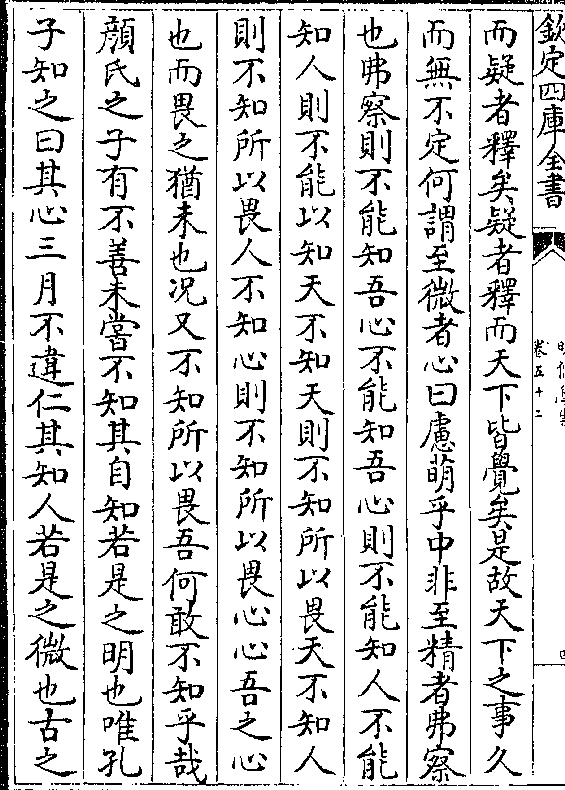 欽定四庫全書
卷五十二
四
而疑者釋矣疑者釋而天下皆覺矣是故天下之事久
而無不定何謂至微者心曰慮萌乎中非至精者弗察
也弗察則不能知吾心不能知吾心則不能知人不能
知人則不能以知天不知天則不知所以畏天不知人
則不知所以畏人不知心則不知所以畏心心吾之心
也而畏之猶未也况又不知所以畏吾何敢不知乎哉
顔氏之子有不善未嘗不知其自知若是之明也唯孔
子知之曰其心三月不違仁其知人若是之微也古之